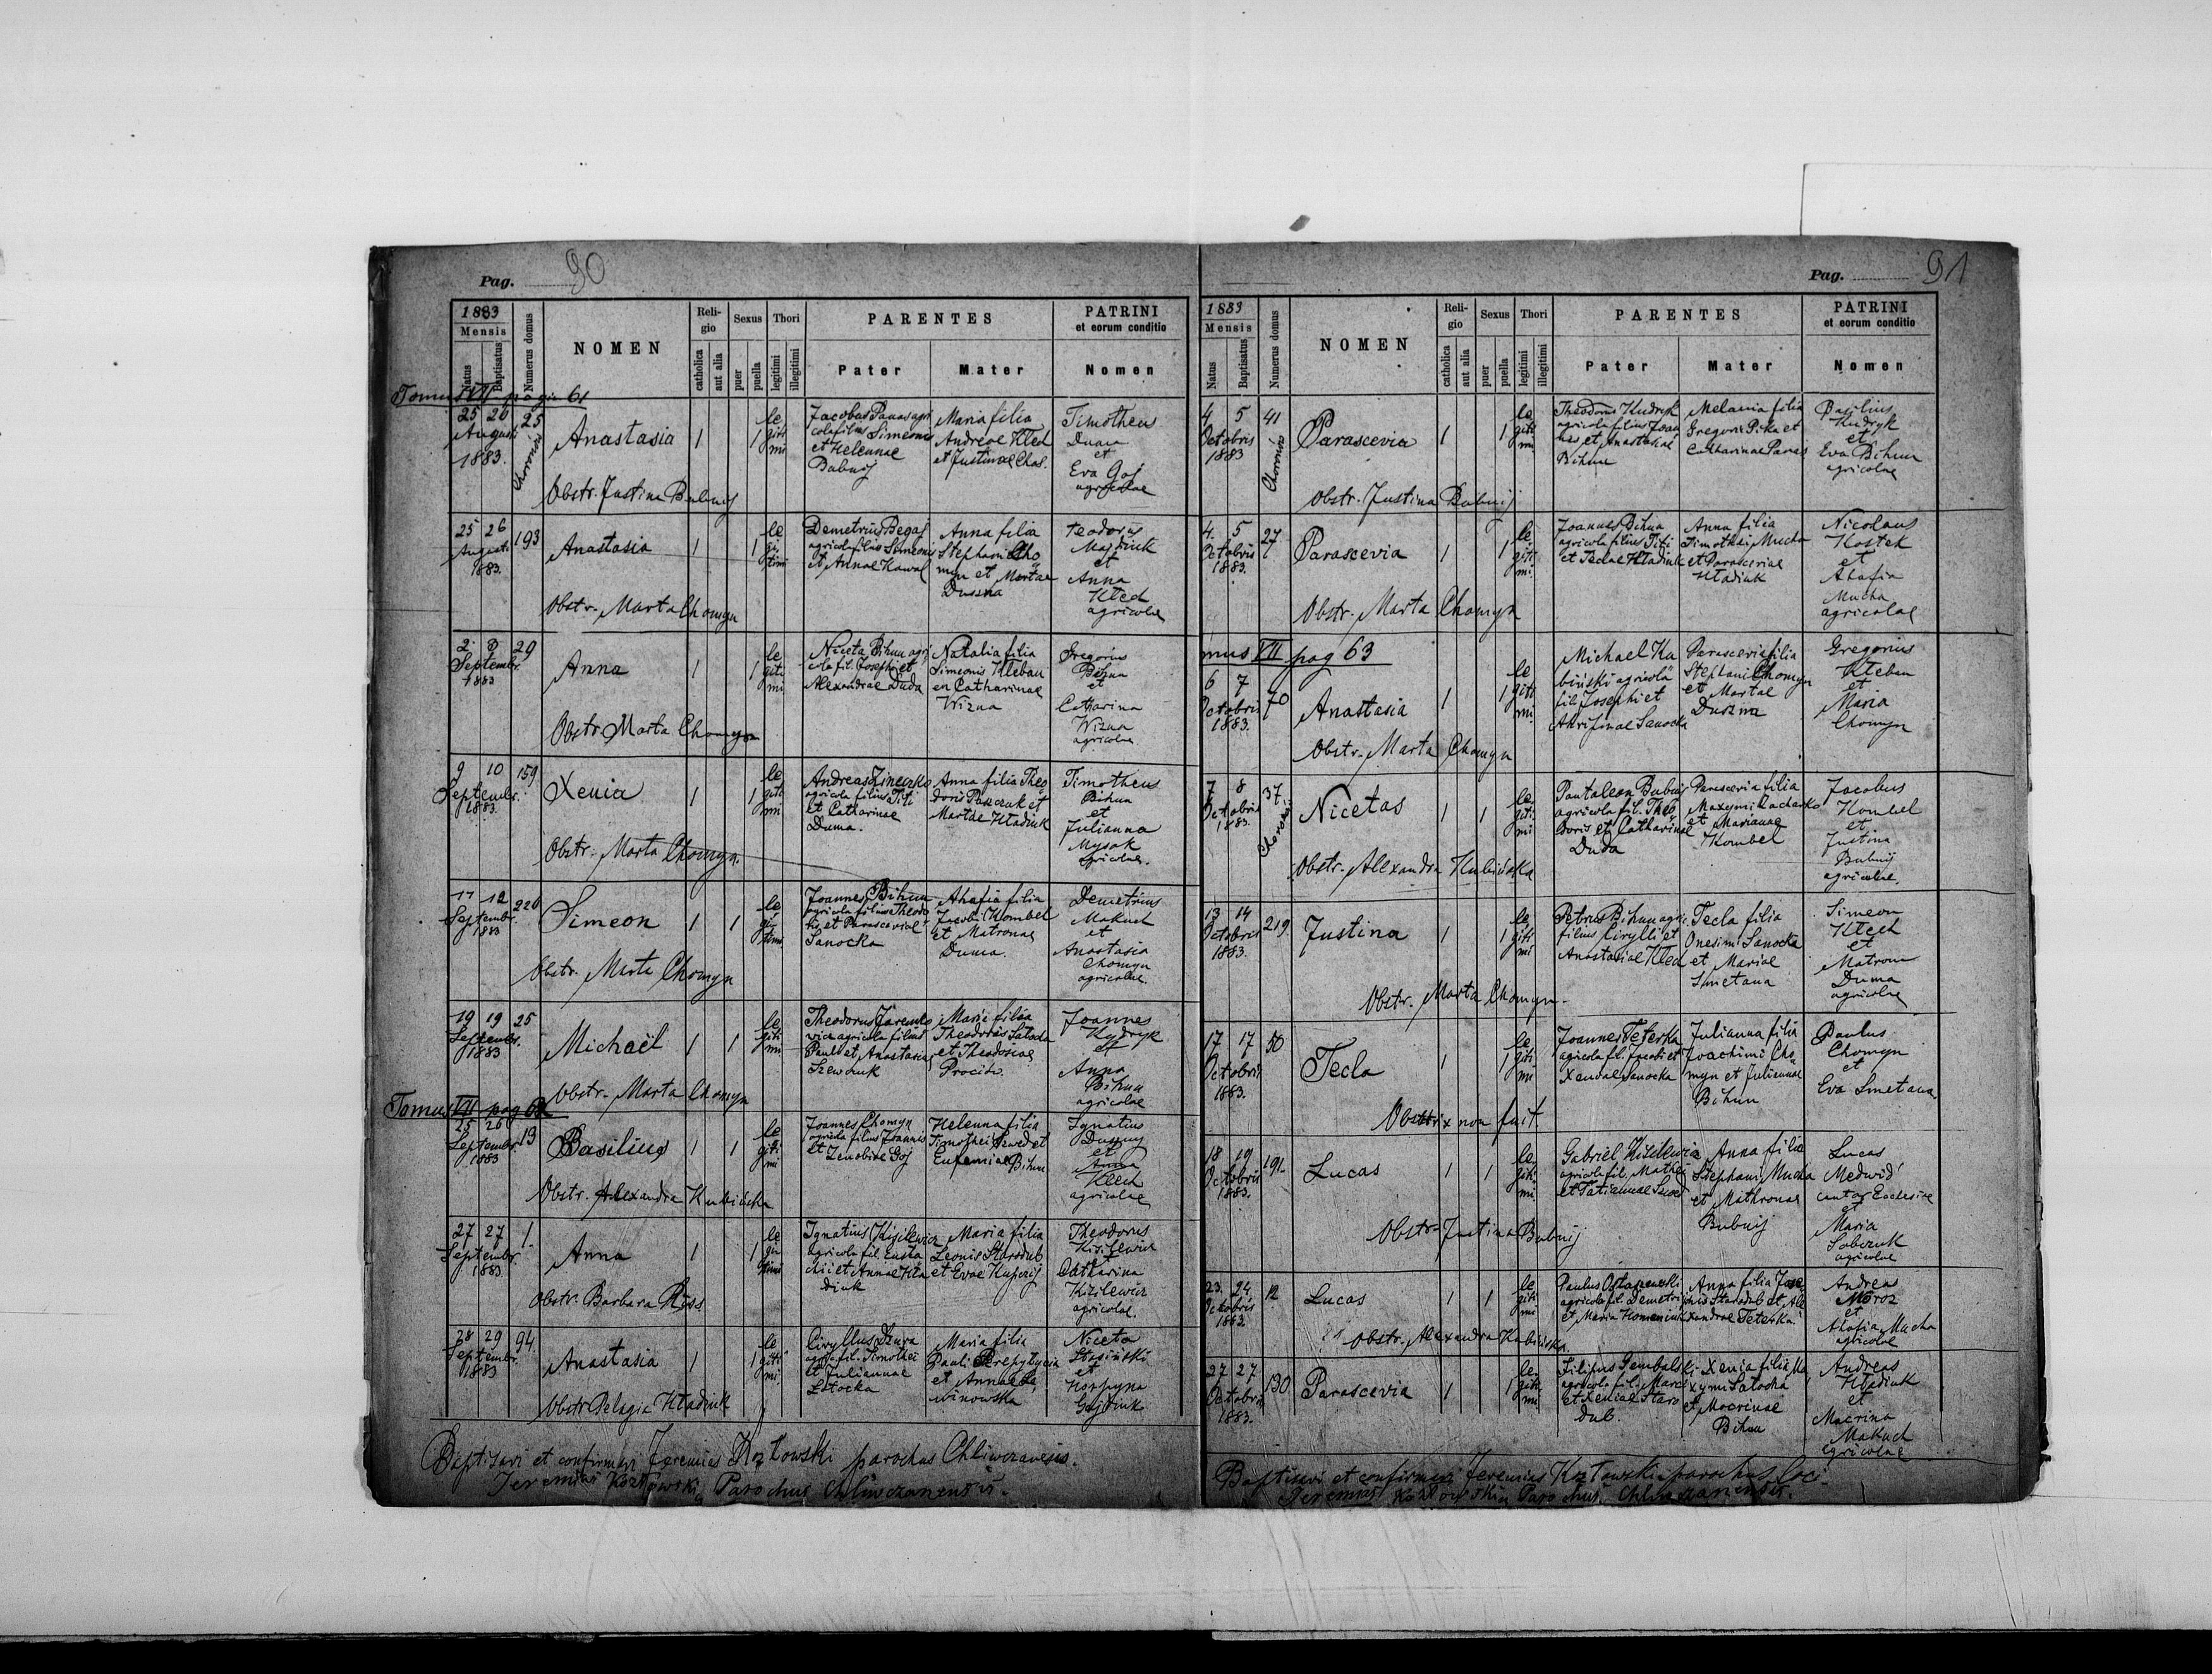 Pag. 90
1883
Mensis
Natus
Baptisatus
Numerus domus
NOMEN
Religio
catholica
aut alia
Sexus
puer
puella
Thori
legitimi
illegitimi
PARENTES
Pater
Mater
PATRINI
et eorum conditio
Nomen
Tomus VII pagin 61
25 26 25
Augusti
1883.
Anastasia 1 1 legitimi
Jacobus Panas agri
cola filius Simeonis
et Helennae
Bubnij
Maria filia
Andreae Klech
et Justinae Chas.
Timotheus
Duma
et
Eva Goj
agricolae
Obstr. Justina Bubnij
25 26 193
Augusti
1883.
Anastasia 1 1 legitimi
Demetrius Begaj
agricola filius Simeonis
et Annae Kowal
Anna filia
Stephani Cho
myn et Martae
Duszna
Teodorus
Majdiuk
et
Anna
Klech
agricolae
Obstr. Marta Chomyn
2 3 29
Septembr.
1883
Anna 1 1 legitimi
Niceta Bihun agri
cola fil. Josephi et
Alexandrae Duda
Natalia filia
Simeonis Kleban
et Catharinae
Wizna
Gregorius
Bihun
et
Catharina
Wizna
agricolae
Obstr. Marta Chomyn
9 10 159
Septembr.
1883.
Xenia 1 1 legitimi
Andreas Zineczko
agricola filius Titi
et Catharinae
Duma.
Anna filia Theo
doris Panczuk et
Martae Hladiuk
Timotheus
Bihun
et
Julianna
Mysak
agricolae.
Obstr. Marta Chomyn.
11 12 220
Septembr.
1883
Simeon 1 1 legitimi
Joannes Bihun
agricola filius Theodo
ris et Parasceviae
Sanocka
Ahafia filia
Jacobi Kombel
et Matronae
Duma.
Demetrius
Makuch
et
Anastasia
Chomyn
agricolae.
Obstr. Marta Chomyn
19 19 25
Septembr.
1883
Michaël 1 1 legitimi
Theodorus Jaremko
vicz agricola filius
Pauli et Anastasiae
Szewczuk
Maria filia
Theodoris Satocha
et Theodosiae
Procito.
Joannes
Kudryk
et
Anna
Bihun
agricolae
Obstr. Marta Chomyn
Tomus VII pag 62
25 26 19
Septembr.
1883
Basilius 1 1 legitimi
Joannes Chomyn
agricola filius Joannis
et Zenobiae Goj
Helenna filia
Timothei Szwed et
Eufemiae Bihun
Ignatius
Duszny
et
Anna
Klech
agricolae
Obstr. Alexandra Kubińska
27 27 1.
Septembr.
1883.
Anna 1 1 legitimi
Ignatius Kisilewicz
agricola fil. Eusta
chii et Annae Hla
diuk
Maria filia
Leonis Starodub
et Evae Kuperij
Theodorus
Kisilewicz
et
Catharina
Kisilewicz
agricolae
Obstr. Barbara Riss
28 29 94.
Septembr.
1883
Anastasia 1 1 legitimi
Ciryllus Dziura
agric. fil. Timothei
et Juliannae
Maria filia
Pauli Perepylycia
et Annae Le
winowska
Niceta
Stasiński
et
Horpyna
Gajdiuk
Obstr. Pelagia Hladiuk
Baptisavi et confirmavi Jeremias Kozłowski parochus Chliwczanensis.
Jeremias Kozłowski Parochus Chliwczanensis.
Pag. 91
1883
Mensis
Natus
Baptisatus
Numerus domus
NOMEN
Religio
catholica
aut alia
Sexus
puer
puella
Thori
legitimi
illegitimi
PARENTES
Pater
Mater
PATRINI
et eorum conditio
Nomen
4 5 41
Octobris
1883
Parascevia 1 1 legitimi
Theodorus Kudryk
agricola filius Joan
nis et Anastasiae
Bihun
Melania filia
Gregorii Pika et
Catharinae Panas
Basilius
Kudryk
et
Eva Bihun
agricolae
Obstr. Justina Bubnij
4. 5 27
Octobris
1883.
Parascevia 1 1 legitimi
Joannes Bihun
agricola filius Titi
et Teclae Hladiuk
Anna filia
Timothei Mucha
et Parasceviae
Hladiuk
Nicolaus
Kostek
et
Ahafia
Mucha
agricolae
Obstr. Marta Chomyn
mus VII pag 63
6 7 70
Octobris
1883.
Anastasia 1 1 legitimi
Michael Ku
biński agricola
fil. Josephi et
Ahrifinae Sanocka
Parascevia filia
Stephani Chomyn
et Martae
Duszna
Gregorius
Kleban
et
Maria
Chomyn
Obstr. Marta Chomyn
7 8 37
Octobris
1883.
Nicetas 1 1 legitimi
Pantaleon Bubnij
agricola fil. Theo
doris et Catharinae
Duda
Parascevia filia
Maxymi Zacharko
et Marianae
Kombel
Jacobus
Kombel
et
Justina
Bubnij
agricolae.
Obstr. Alexandra Kubińska
13 14 219
Octobris
1883.
Justina 1 1 legitimi
Petrus Bihun agric.
filius Cirylli et
Anastasiae Klech
Tecla filia
Onesimi Sanocka
et Mariae
Smetana
Simeon
Klech
et
Matrona
Duma
agricolae
Obstr. Marta Chomyn.
17 17 50
Octobris
1883.
Tecla 1 1 legitimi
Joannes Teterka
agricola fil. Jacobi et
Xeniae Sanocka
Julianna filia
Joachimi Cho
myn et Juliannae
Bihun
Paulus
Chomyn
et
Eva Smetana
Obstrix non fuit.
18 19 191.
Octobris
1883.
Lucas 1 1 legitimi
Gabriel Kisilewicz
agricola fil. Mathei
et Tatiannae Szwed
Anna filia
Stephani Mucha
et Mathronae
Bubnij
Lucas
Medwid
cantor Ecclesiae
et
Maria
Sobczuk
agricolae
Obstr. Justina Bubnij
23. 24. 12
Octobris
1883.
Lucas 1 1 legitimi
Paulus Ostaszewski
agricola fil. Demetri
et Maria Homeniuk
Anna filia Jose
phi Starodub et Ale
xandrae Teterka
Andreas
Moroz
et
Ahafia Mucha
agricolae
Obstr. Alexandra Kubińska.
27 27 130
Octobris
1883.
Parascevia 1 1 legitimi
Filipus Gembalski
agricola fil. Marci
et Xeniae Staro
dub.
Xenia filia Ma
xymi Satocha
et Macrinae
Bihun
Andreas
Hladiuk
et
Macrina
Makuch
agricolae
Baptisavi et confirmavi Jeremias Kozłowski parochus loci.
Jeremias Kozłowski Parochus Chliwczanensis.